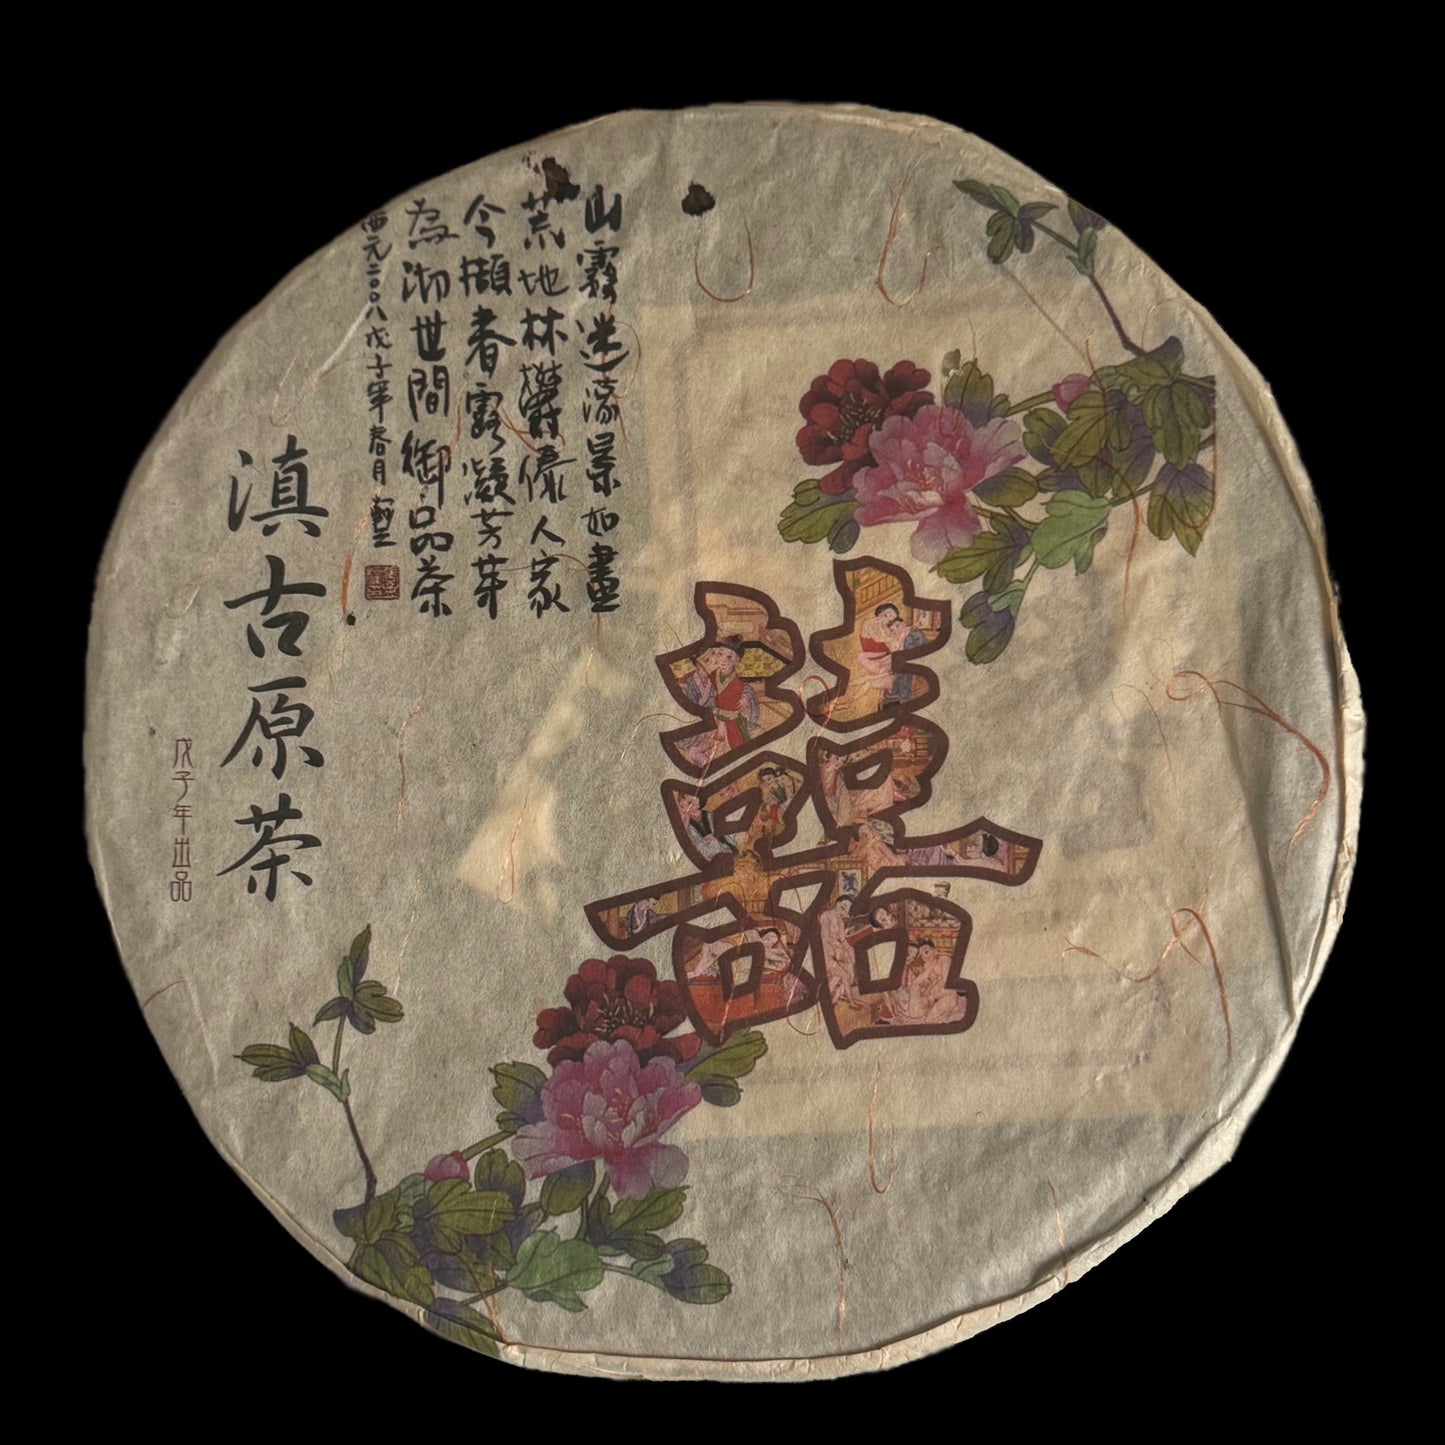 山霧迷濛景如畫
荒地林欝傣人家
今擷春露凝芳芽
為沏世間御品茶
西元二〇〇八戊子年春月
滇古原茶
戊子年出品
囍